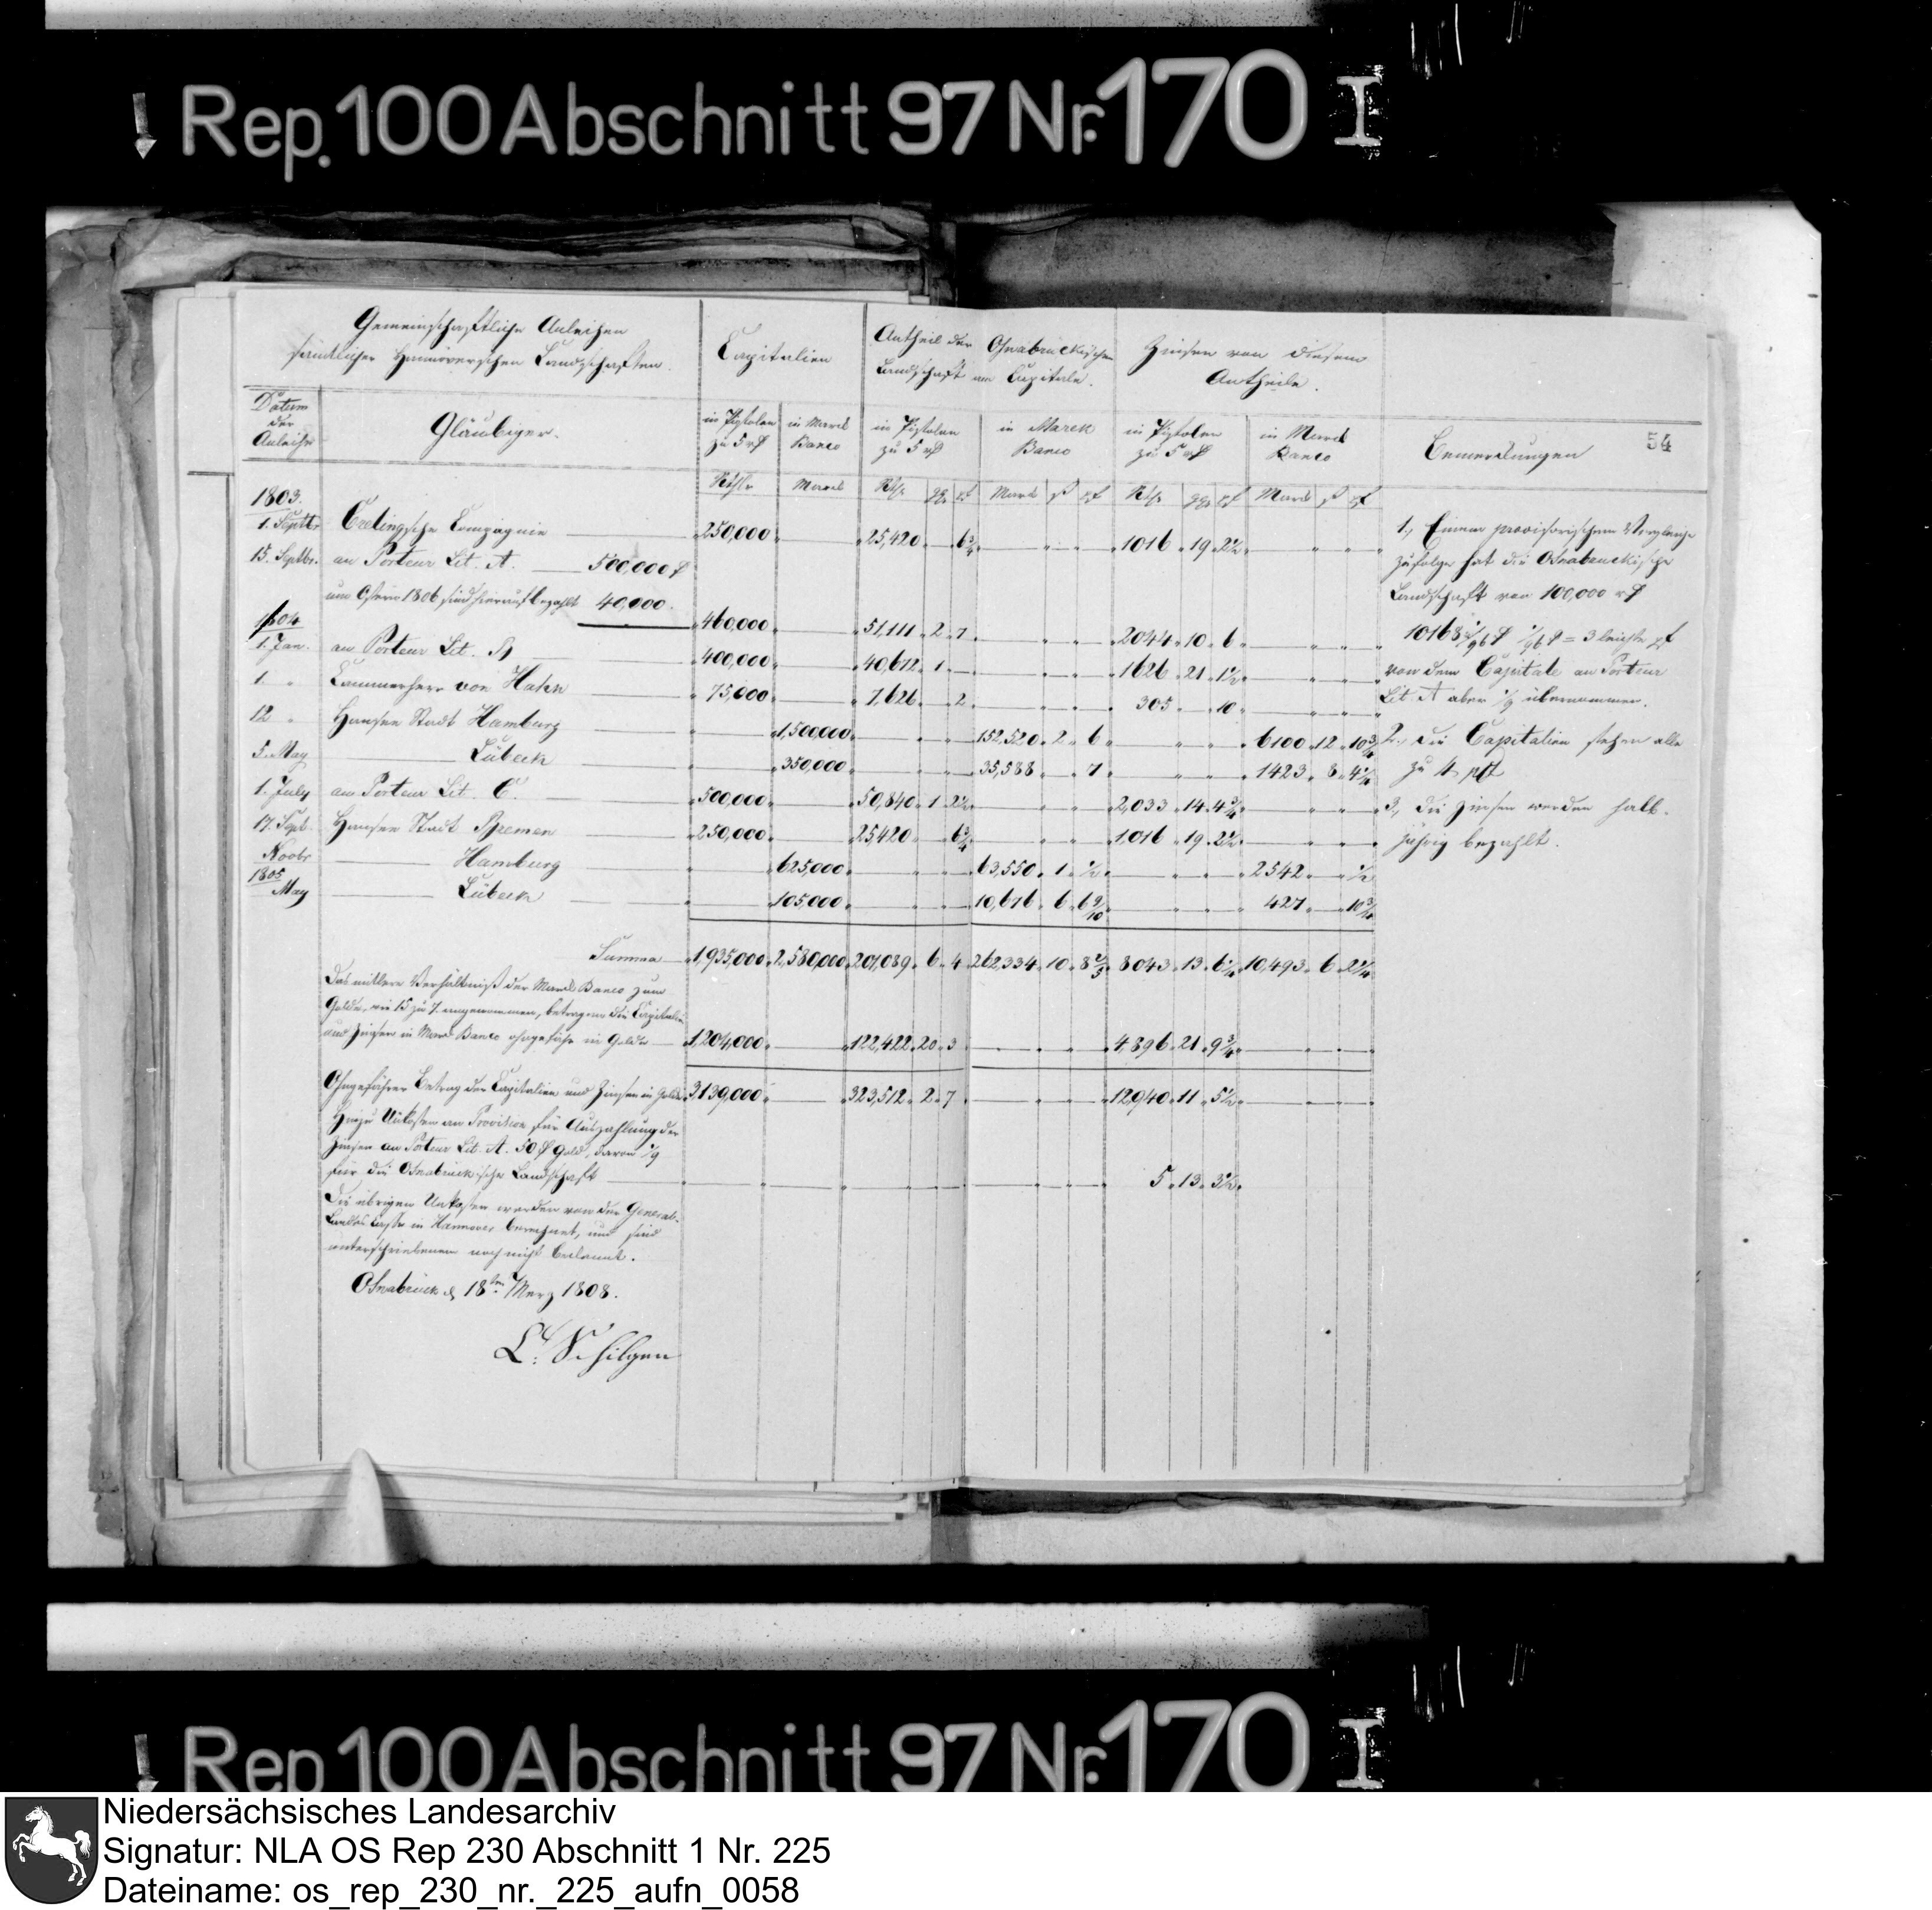 Rep. 100 Abschnitt 97 Nr. 170 I
Gemeinschaftliche Anleihen
sämtlicher Hannöverschen Landschaften.
Capitalien
Antheil der Osnabrückischen
Landschaft am Capitale.
Zinsen von diesem
Antheile.
Datum
der
Anleihe
Gläubiger.
in Pistolen
zu 5 rß
in Marck
Banco
in Pistolen
zu 5 rß
in Marck
Banco
in Pistolen
zu 5 rß
in Marck
Banco
Bemerckungen
54
Rthlr Marck Rthl ggr pf Marck ß pf Rthl ggr pf Marck ß pf
1803.
1. Septbr. Compagnie 250,000 25,420 6 3/4 1016 19 2 1/2
15. Septbr. an Porteur Lit. A. 500,000 ß
um Ostern 1806 sind hierauf bezahlt 40,000.
460,000 51,111 2 7 2044 10 6
1804
1. Jan. an Porteur Lit. B 400,000 40,672 1 1626 21 1 1/2
1. " Cammerherr von Hahn 75,000 7,626 2 305 10
12 " Hansee Stadt Hamburg 1,500,000 152,520 2 6 6100 12 10 3/4
5. May Lübeck 350,000 35,588 7 1423 8 4 1/4
1. July an Porteur Lit. C. 500,000 50,840 1 2 1/2 2,033 14 4 3/4
17. Sept. Hansee Stadt Bremen 250,000 25,420 6 3/4 1,016 19 2 1/2
Novbr Hamburg 625,000 63,550 1 1/2 2542 1/2
1805
May Lübeck 105,000 10,676 6 6 9/10 427 10 3/4
Summa 1,935,000 2,580,000 201,089 6 4 262,334 10 8 2/5 8043 13 6 1/4 10,493 6 2 1/4
Das mittlere Verhältniß der Marck Banco zum
Golde, wie 15 zu 7. angenommen, betragen die Capitalien
und Zinsen in Marck Banco ohngefähr in Golde 1,204,000 122,422 20 3 4,896 21 9 3/4
Ohngefährer Betrag der Capitalien und Zinsen in Golde 3,139,000 323,512 2 7 12,940 11 5 1/2
Hiezu Unkosten an Provision für Auszahlung der
Zinsen an Porteur Lit. A. 50 ß Gold, davon 1/9
für die Osnabrücksche Landschaft 5 13 3 1/2
Die übrigen Unkosten werden von der General-
Landes Casse in Hannover berechnet, und sind
unterschriebenem noch nicht bekannt.
Osnabrück d 18ten Merz 1808.
Schilgen
1., Einem provisorischen Vergleiche
zufolge hat die Osnabrückische
Landschaft von 100,000 rß
= 3 leichte pf
von dem Capitale an Porteur
Lit. A aber 1/9 übernommen.
2., die Capitalien stehen alle
zu 4 pCt
3., die Zinsen werden halb-
jährig bezahlt.
Rep 100 Abschnitt 97 Nr. 170 I
Niedersächsisches Landesarchiv
Signatur: NLA OS Rep 230 Abschnitt 1 Nr. 225
Dateiname: os_rep_230_nr._225_aufn_0058